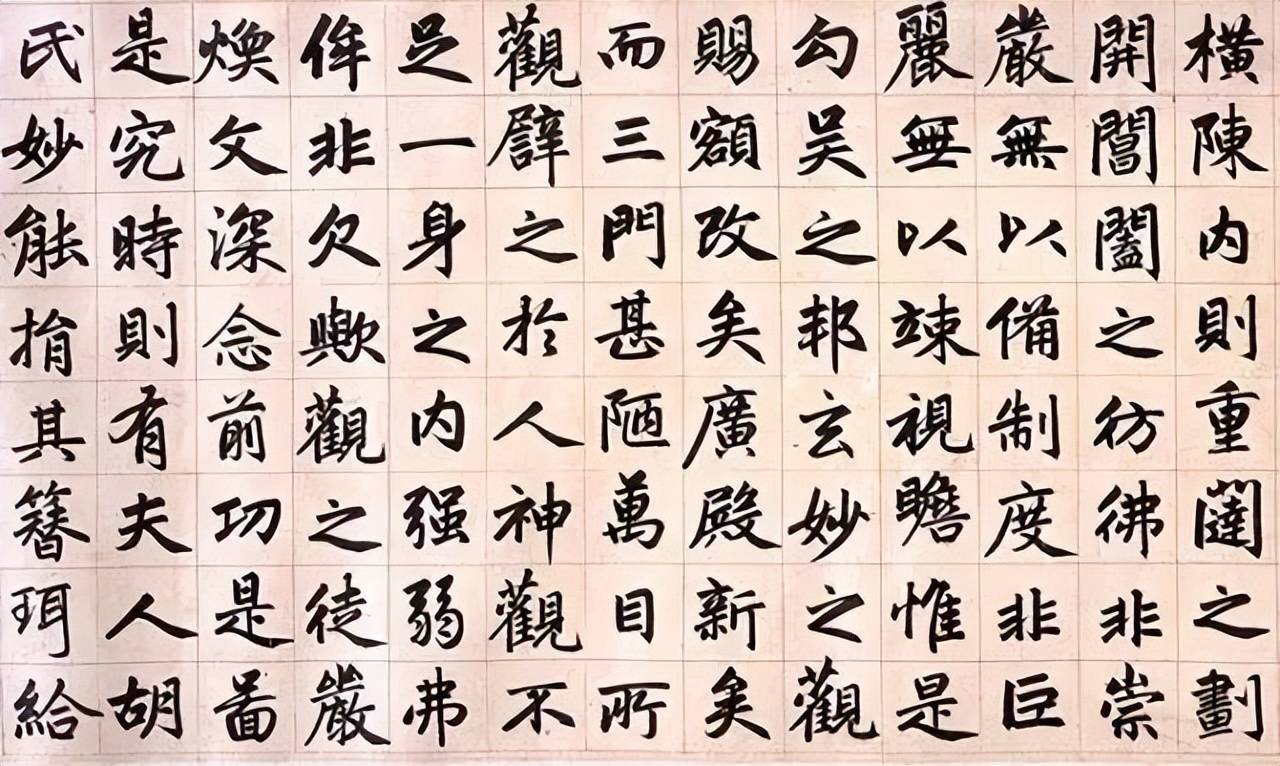 橫陳内則重闥之劃
開閶闔之彷彿非崇
嚴無以備制度非巨
麗無以竦視瞻惟是
勾吴之邦玄妙之觀
賜額改矣廣殿新矣
而三門甚陋萬目所
觀譬之於人神觀不
足一身之内强弱弗
侔非欠歟觀之徒嚴
煥文深念前功是啚
是究時則有夫人胡
氏妙能捐其簪珥給